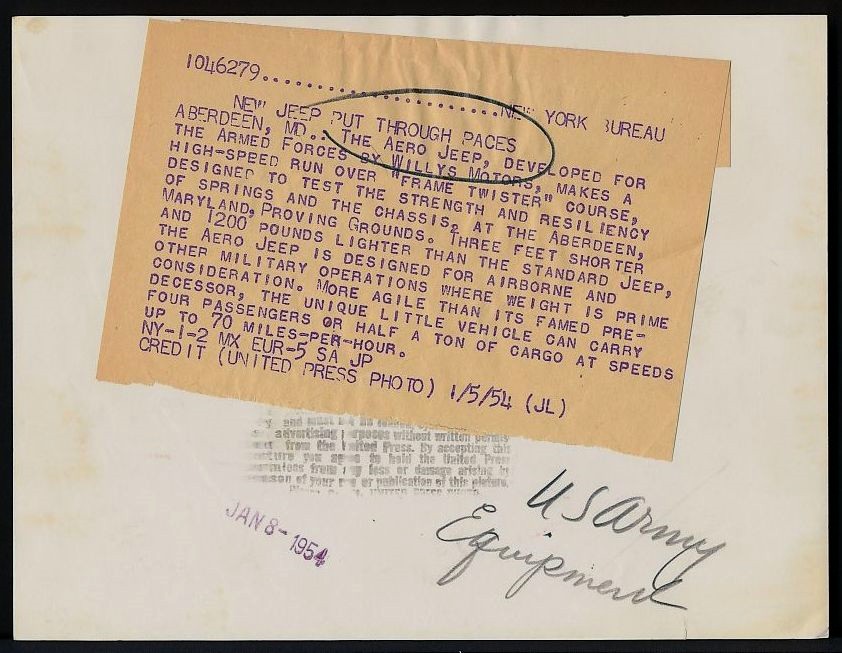 1046279..............................NEW YORK BUREAU
NEW JEEP PUT THROUGH PACES
ABERDEEN, MD.. THE AERO JEEP, DEVELOPED FOR
THE ARMED FORCES BY WILLYS MOTORS, MAKES A
HIGH-SPEED RUN OVER "FRAME TWISTER" COURSE,
DESIGNED TO TEST THE STRENGTH AND RESILIENCY
OF SPRINGS AND THE CHASSIS, AT THE ABERDEEN,
MARYLAND, PROVING GROUNDS. THREE FEET SHORTER
AND 1200 POUNDS LIGHTER THAN THE STANDARD JEEP,
THE AERO JEEP IS DESIGNED FOR AIRBORNE AND
OTHER MILITARY OPERATIONS WHERE WEIGHT IS PRIME
CONSIDERATION. MORE AGILE THAN ITS FAMED PRE-
DECESSOR, THE UNIQUE LITTLE VEHICLE CAN CARRY
FOUR PASSENGERS OR HALF A TON OF CARGO AT SPEEDS
UP TO 70 MILES-PER-HOUR.
NY-1-2 MX EUR-5 SA JP
CREDIT (UNITED PRESS PHOTO) 1/5/54 (JL)
and must not be loaned,
advertising purposes without written permis
from the United Press. By accepting this
picture you agree to hold the United Press
harmless from any loss or damage arising by
reason of your use or publication of this picture.
UNITED PRESS
JAN 8 - 1954
US Army
Equipment